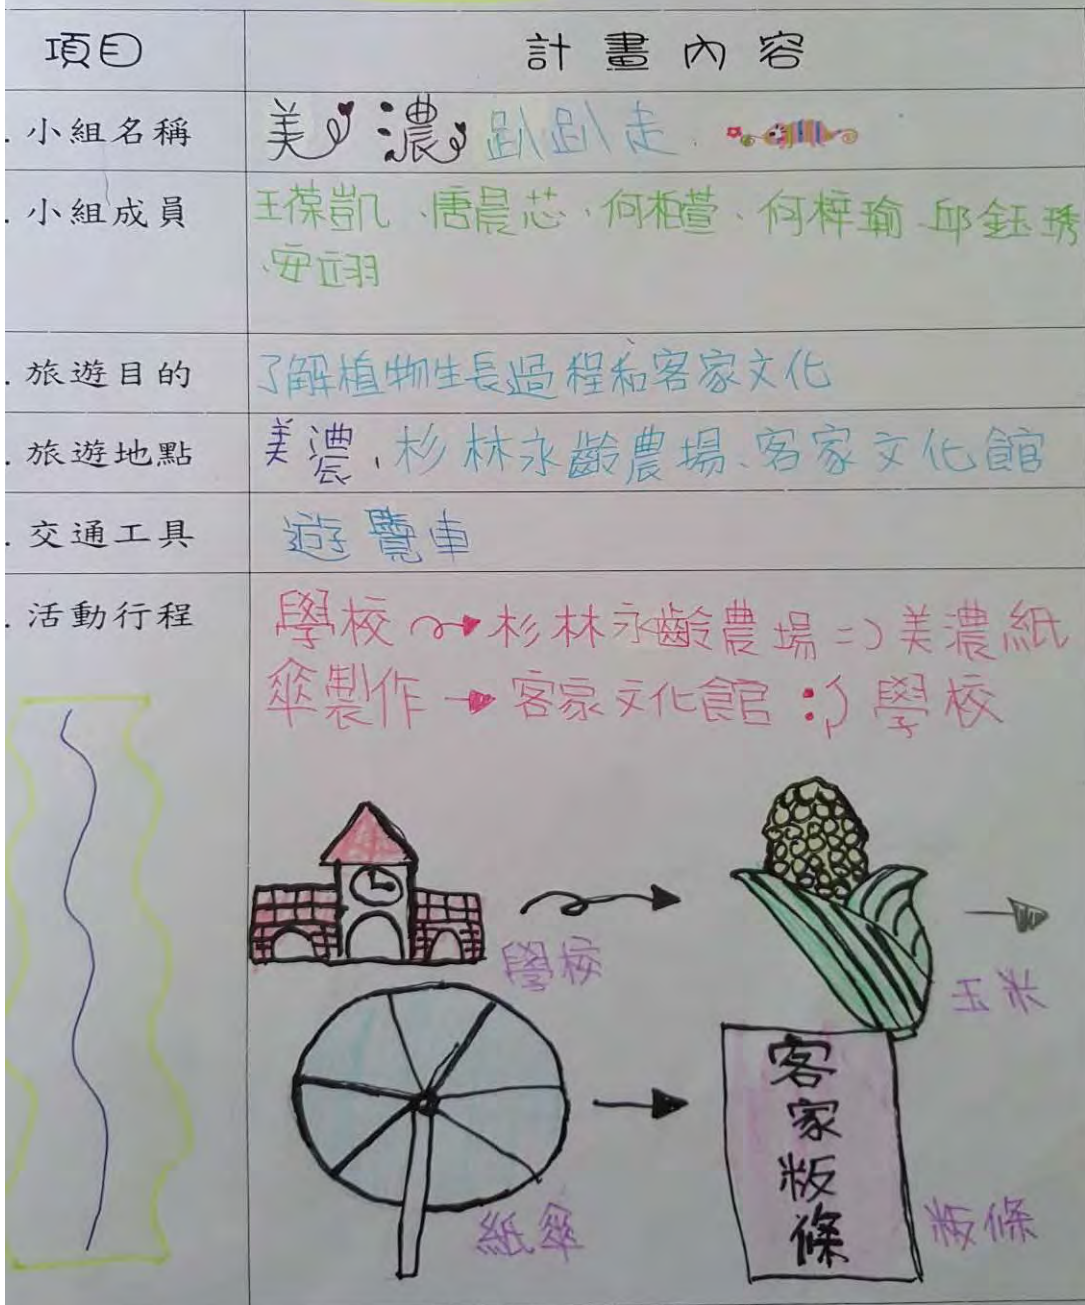 項目 計畫內容
. 小組名稱 美濃趴趴走
. 小組成員 王葆凱、唐晨芯、何栢萱、何梓瑜、邱鈺琇
、安立羽
. 旅遊目的 了解植物生長過程和客家文化
. 旅遊地點 美濃、杉林永齡農場、客家文化館
. 交通工具 遊覽車
. 活動行程 學校 → 杉林永齡農場 => 美濃紙
傘製作 → 客家文化館 :) 學校
學校
玉米
紙傘
客家粄條
粄條